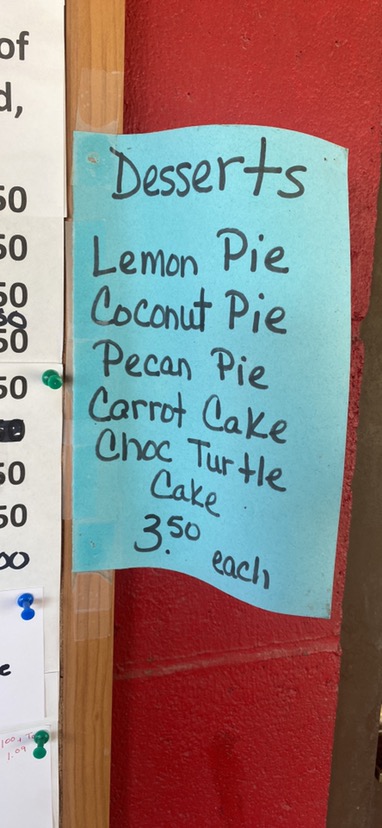 of
d,
50
50
50
50
50
50
50
00
e
Desserts
Lemon Pie
Coconut Pie
Pecan Pie
Carrot Cake
Choc Turtle
Cake
3.50
each
1.09